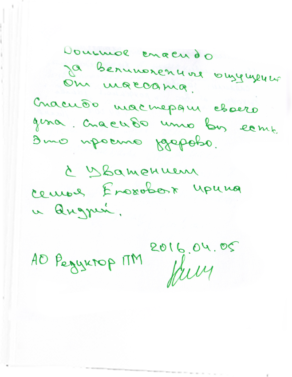 Большое спасибо
за великолепные ощущения
от массажа.
Спасибо мастерам своего
дела. Спасибо что вы есть.
Это просто здорово.
С Уважением
семья Елоховых Ирина
и Андрей.
2016.04.05
АО Редуктор ПМ